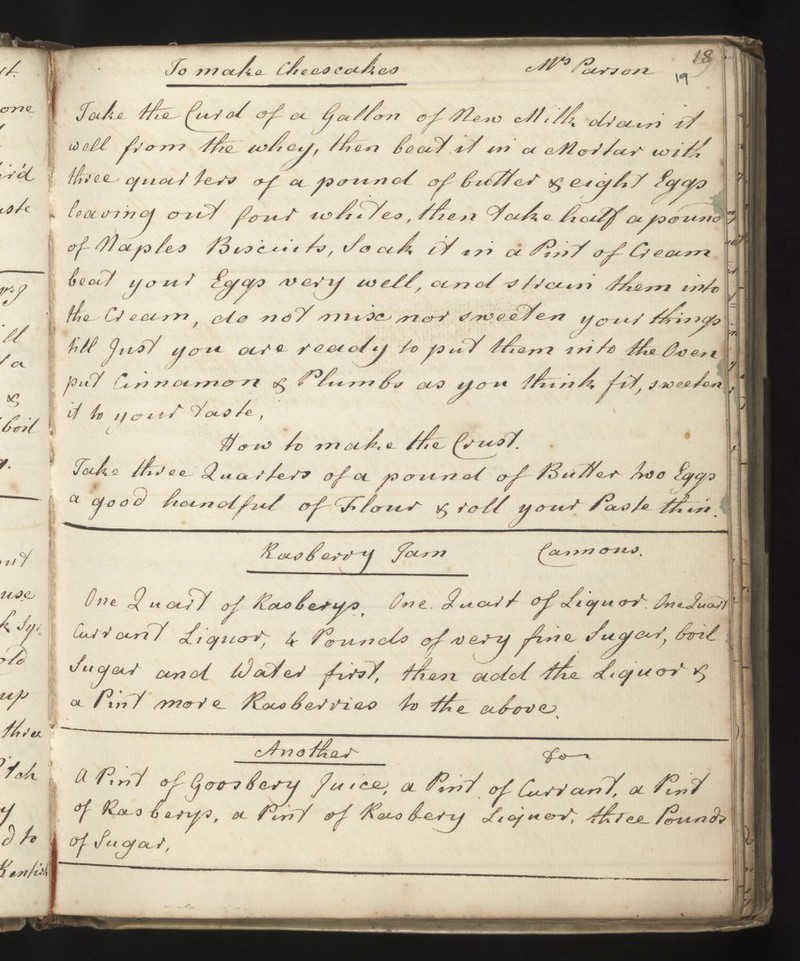 To make Cheescakes Mrs Parson 18
19
Take the Curd of a Gallon of New Milk drain it
well from the whey, then beat it in a Mortar with
three quarters of a pound of butter & eight Eggs
leaving out four whites, then take half a pound
of Naples Biscuits, Soak it in a Pint of Cream
beat your Eggs very well, and strain them into
the Cream, do not mix nor sweeten your things
till Just you are ready to put them into the Oven
put Cinnamon & Plumbs as you think fit, sweeten
it to your Taste,
How to make the Crust.
Take three Quarters of a pound of Butter two Eggs
a good handful of Flour & roll your Paste thin.
Rasberry Jam Cannons.
One Quart of Rasberys. One Quart of Liquor. One Quart
Currant Liquor, 4 Pounds of very fine Sugar, boil
Sugar and Water first, then add the Liquor &
a Pint more Rasberries to the above.
Another Do
A Pint of Goosbery Juice, a Pint of Currant, a Pint
of Rasberys, a Pint of Rasbery Liquor, three Pounds
of Sugar,
one
ird
&
boil
use
old
up
three
d to
Kentish